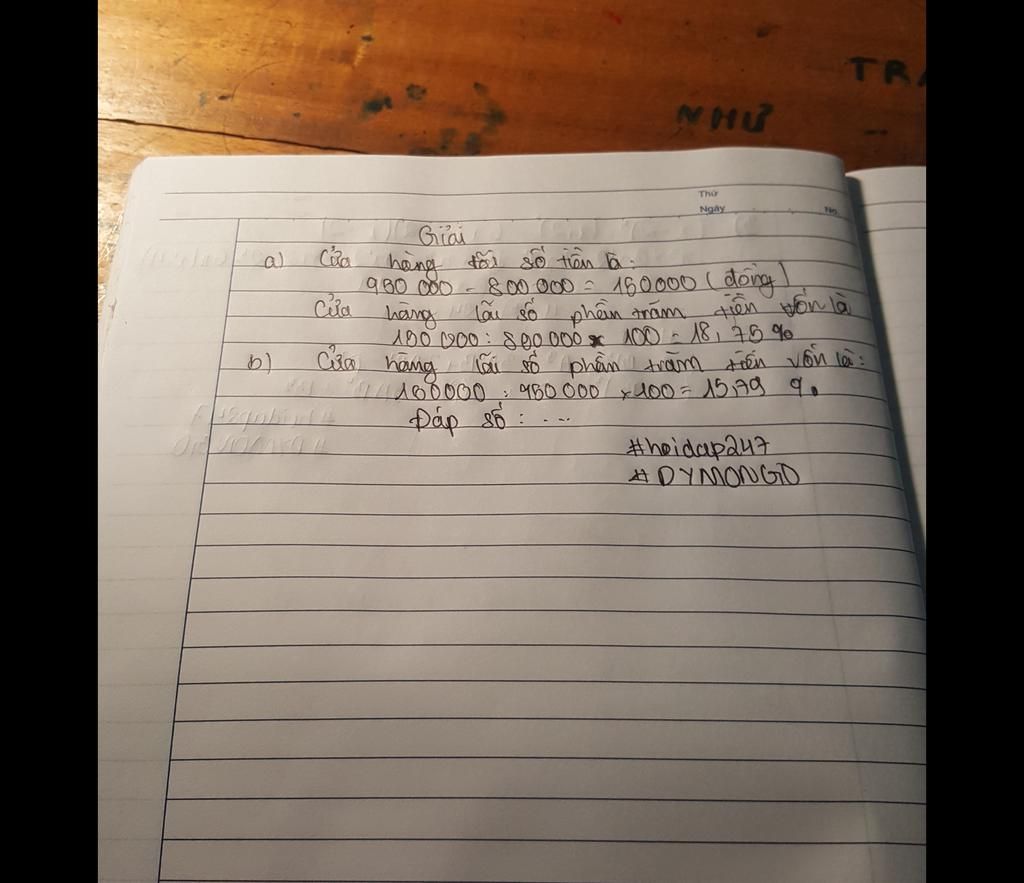 TRA
NHƯ
Thứ
Ngày No.
Giải
a) Cửa hàng số tiền là:
950 000 - 800 000 = 150000 (đồng)
Cửa hàng lãi số phần trăm tiền vốn là
150 000 : 800 000 x 100 = 18,75 %
b) Cửa hàng lãi số phần trăm tiền vốn là:
150000 : 950 000 x 100 = 15,79 %
Đáp số : ...
#hoidap247
#DYMONGO